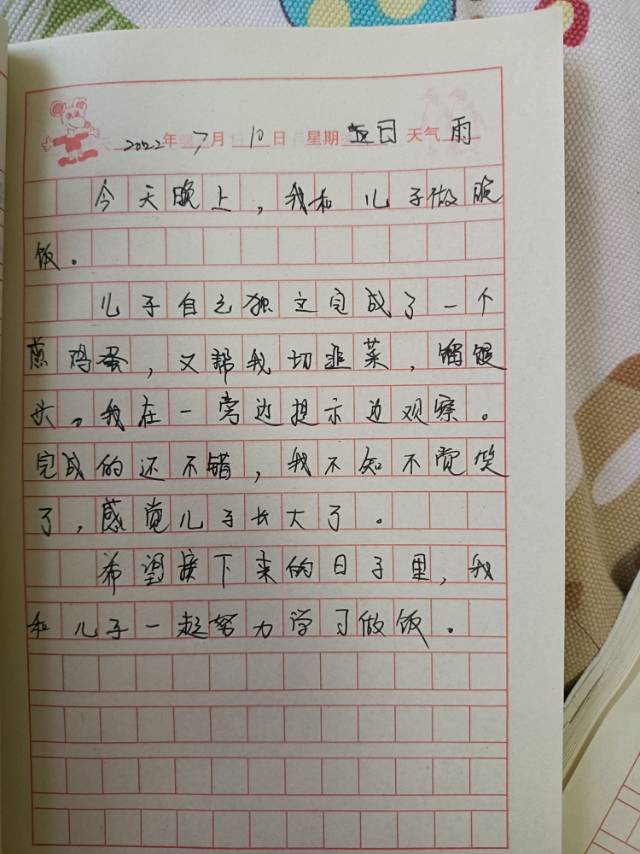 2022年7月10日 星期日 天气雨
今天晚上，我和儿子做晚
饭。
儿子自己独立完成了一个
煎鸡蛋，又帮我切韭菜，馏馒
头，我在一旁边提示边观察。
完成的还不错，我不知不觉笑
了，感觉儿子长大了。
希望接下来的日子里，我
和儿子一起努力学习做饭。